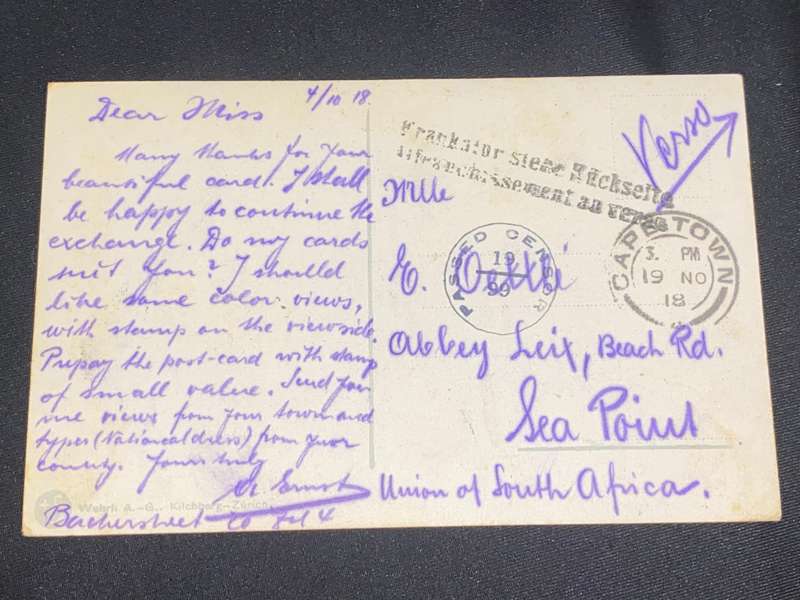 4/10 18.
Dear Miss
Many thanks for your
beautiful card. I shall
be happy to continue the
exchange. Do my cards
suit you? I should
like some color views,
with stamp on the viewside.
Prepay the post-card with stamp
of small value. Send for
me views from your town and
types (National dress) from your
county. Yours truly
Ernst
Wehrli A.-G., Kilchberg-Zürich
Frankatur siehe Rückseite
Affranchissement au verso
Verso
PASSED CENSOR
19
99
CAPE TOWN
3. PM
19 NO
18
Mlle
E.
Abbey Leix, Beach Rd.
Sea Point
Union of South Africa.